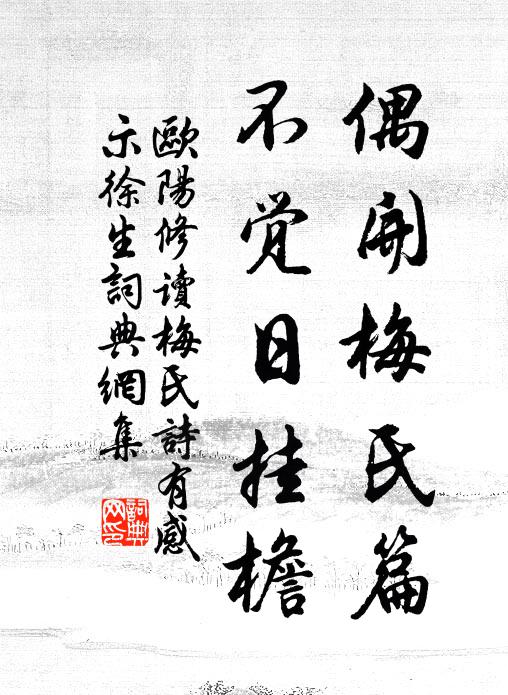 偶開梅氏篇
不觉日挂檐
歐陽修讀梅氏詩有感
示徐生詞典網集
詞典
网印